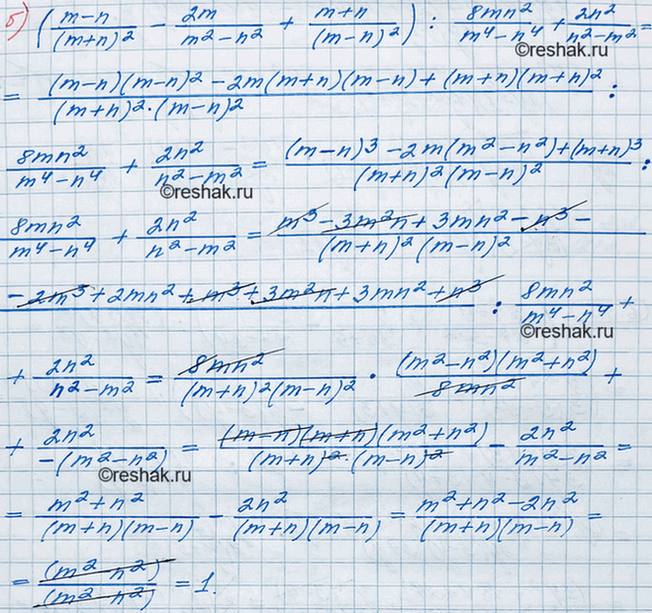 б) ((m-n)/(m+n)² - 2m/(m²-n²) + (m+n)/(m-n)²) : 8mn²/(m⁴-n⁴) + 2n²/(n²-m²) =
©reshak.ru
= ((m-n)(m-n)² - 2m(m+n)(m-n) + (m+n)(m+n)²)/((m+n)²·(m-n)²) :
8mn²/(m⁴-n⁴) + 2n²/(n²-m²) = ((m-n)³ - 2m(m²-n²) + (m+n)³)/((m+n)²(m-n)²) :
©reshak.ru
8mn²/(m⁴-n⁴) + 2n²/(n²-m²) = (m³ - 3m²n + 3mn² - n³ -)/((m+n)²(m-n)²)
- 2m³ + 2mn² + m³ + 3m²n + 3mn² + n³ : 8mn²/(m⁴-n⁴) +
©reshak.ru
+ 2n²/(n²-m²) = 8mn²/((m+n)²(m-n)²) · (m²-n²)(m²+n²)/(8mn²) +
+ 2n²/(-(m²-n²)) = (m-n)(m+n)(m²+n²)/((m+n)²·(m-n)²) - 2n²/(m²-n²) =
©reshak.ru
= (m²+n²)/((m+n)(m-n)) - 2n²/((m+n)(m-n)) = (m²+n²-2n²)/((m+n)(m-n)) =
= (m²-n²)/(m²-n²) = 1.